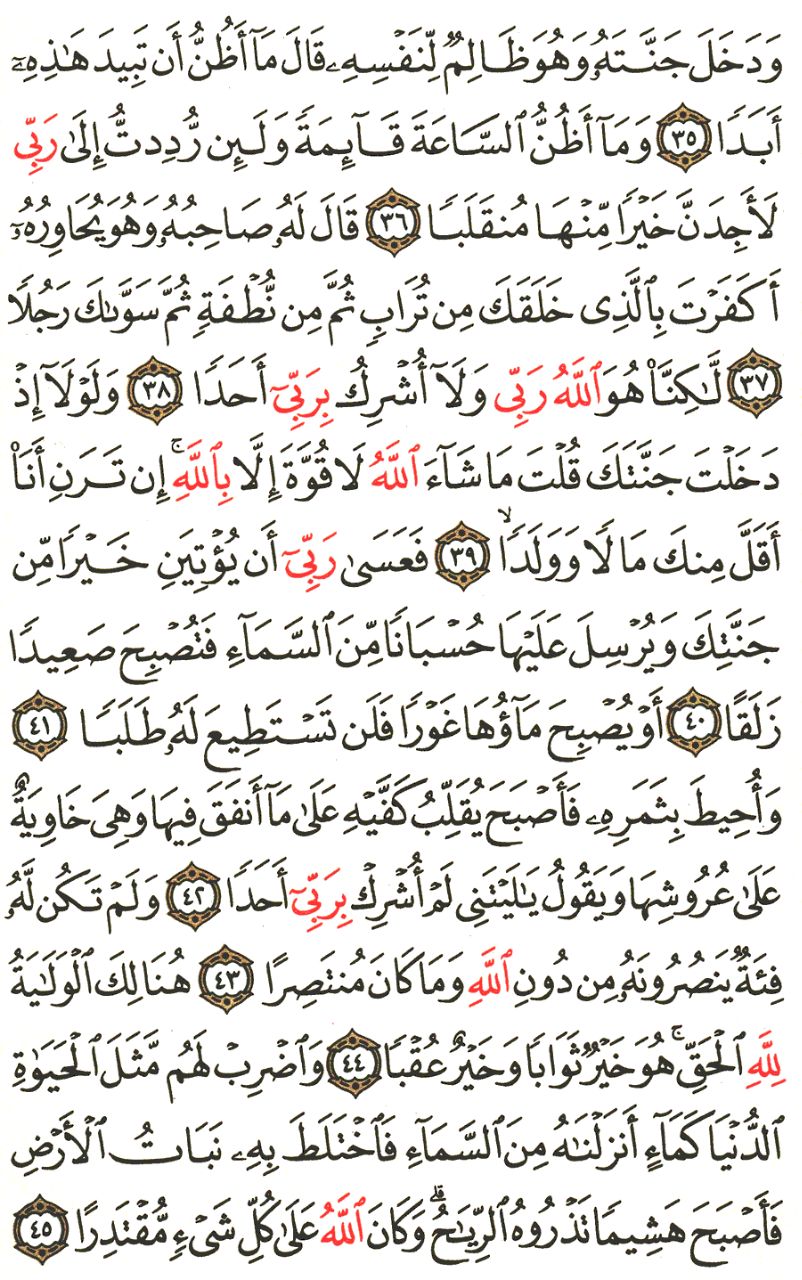 وَدَخَلَ جَنَّتَهُۥ وَهُوَ ظَالِمٌ لِّنَفْسِهِۦ قَالَ مَآ أَظُنُّ أَن تَبِيدَ هَٰذِهِۦٓ
أَبَدًا ٣٥ وَمَآ أَظُنُّ ٱلسَّاعَةَ قَآئِمَةً وَلَئِن رُّدِدتُّ إِلَىٰ رَبِّى
لَأَجِدَنَّ خَيْرًا مِّنْهَا مُنقَلَبًا ٣٦ قَالَ لَهُۥ صَاحِبُهُۥ وَهُوَ يُحَاوِرُهُۥٓ
أَكَفَرْتَ بِٱلَّذِى خَلَقَكَ مِن تُرَابٍ ثُمَّ مِن نُّطْفَةٍ ثُمَّ سَوَّىٰكَ رَجُلًا
٣٧ لَّٰكِنَّا۠ هُوَ ٱللَّهُ رَبِّى وَلَآ أُشْرِكُ بِرَبِّىٓ أَحَدًا ٣٨ وَلَوْلَآ إِذْ
دَخَلْتَ جَنَّتَكَ قُلْتَ مَا شَآءَ ٱللَّهُ لَا قُوَّةَ إِلَّا بِٱللَّهِ ۚ إِن تَرَنِ أَنَا۠
أَقَلَّ مِنكَ مَالًا وَوَلَدًا ۙ ٣٩ فَعَسَىٰ رَبِّىٓ أَن يُؤْتِيَنِ خَيْرًا مِّن
جَنَّتِكَ وَيُرْسِلَ عَلَيْهَا حُسْبَانًا مِّنَ ٱلسَّمَآءِ فَتُصْبِحَ صَعِيدًا
زَلَقًا ٤٠ أَوْ يُصْبِحَ مَآؤُهَا غَوْرًا فَلَن تَسْتَطِيعَ لَهُۥ طَلَبًا ٤١
وَأُحِيطَ بِثَمَرِهِۦ فَأَصْبَحَ يُقَلِّبُ كَفَّيْهِ عَلَىٰ مَآ أَنفَقَ فِيهَا وَهِىَ خَاوِيَةٌ
عَلَىٰ عُرُوشِهَا وَيَقُولُ يَٰلَيْتَنِى لَمْ أُشْرِكْ بِرَبِّىٓ أَحَدًا ٤٢ وَلَمْ تَكُن لَّهُۥ
فِئَةٌ يَنصُرُونَهُۥ مِن دُونِ ٱللَّهِ وَمَا كَانَ مُنتَصِرًا ٤٣ هُنَالِكَ ٱلْوَلَٰيَةُ
لِلَّهِ ٱلْحَقِّ ۚ هُوَ خَيْرٌ ثَوَابًا وَخَيْرٌ عُقْبًا ٤٤ وَٱضْرِبْ لَهُم مَّثَلَ ٱلْحَيَوٰةِ
ٱلدُّنْيَا كَمَآءٍ أَنزَلْنَٰهُ مِنَ ٱلسَّمَآءِ فَٱخْتَلَطَ بِهِۦ نَبَاتُ ٱلْأَرْضِ
فَأَصْبَحَ هَشِيمًا تَذْرُوهُ ٱلرِّيَٰحُ ۗ وَكَانَ ٱللَّهُ عَلَىٰ كُلِّ شَىْءٍ مُّقْتَدِرًا ٤٥